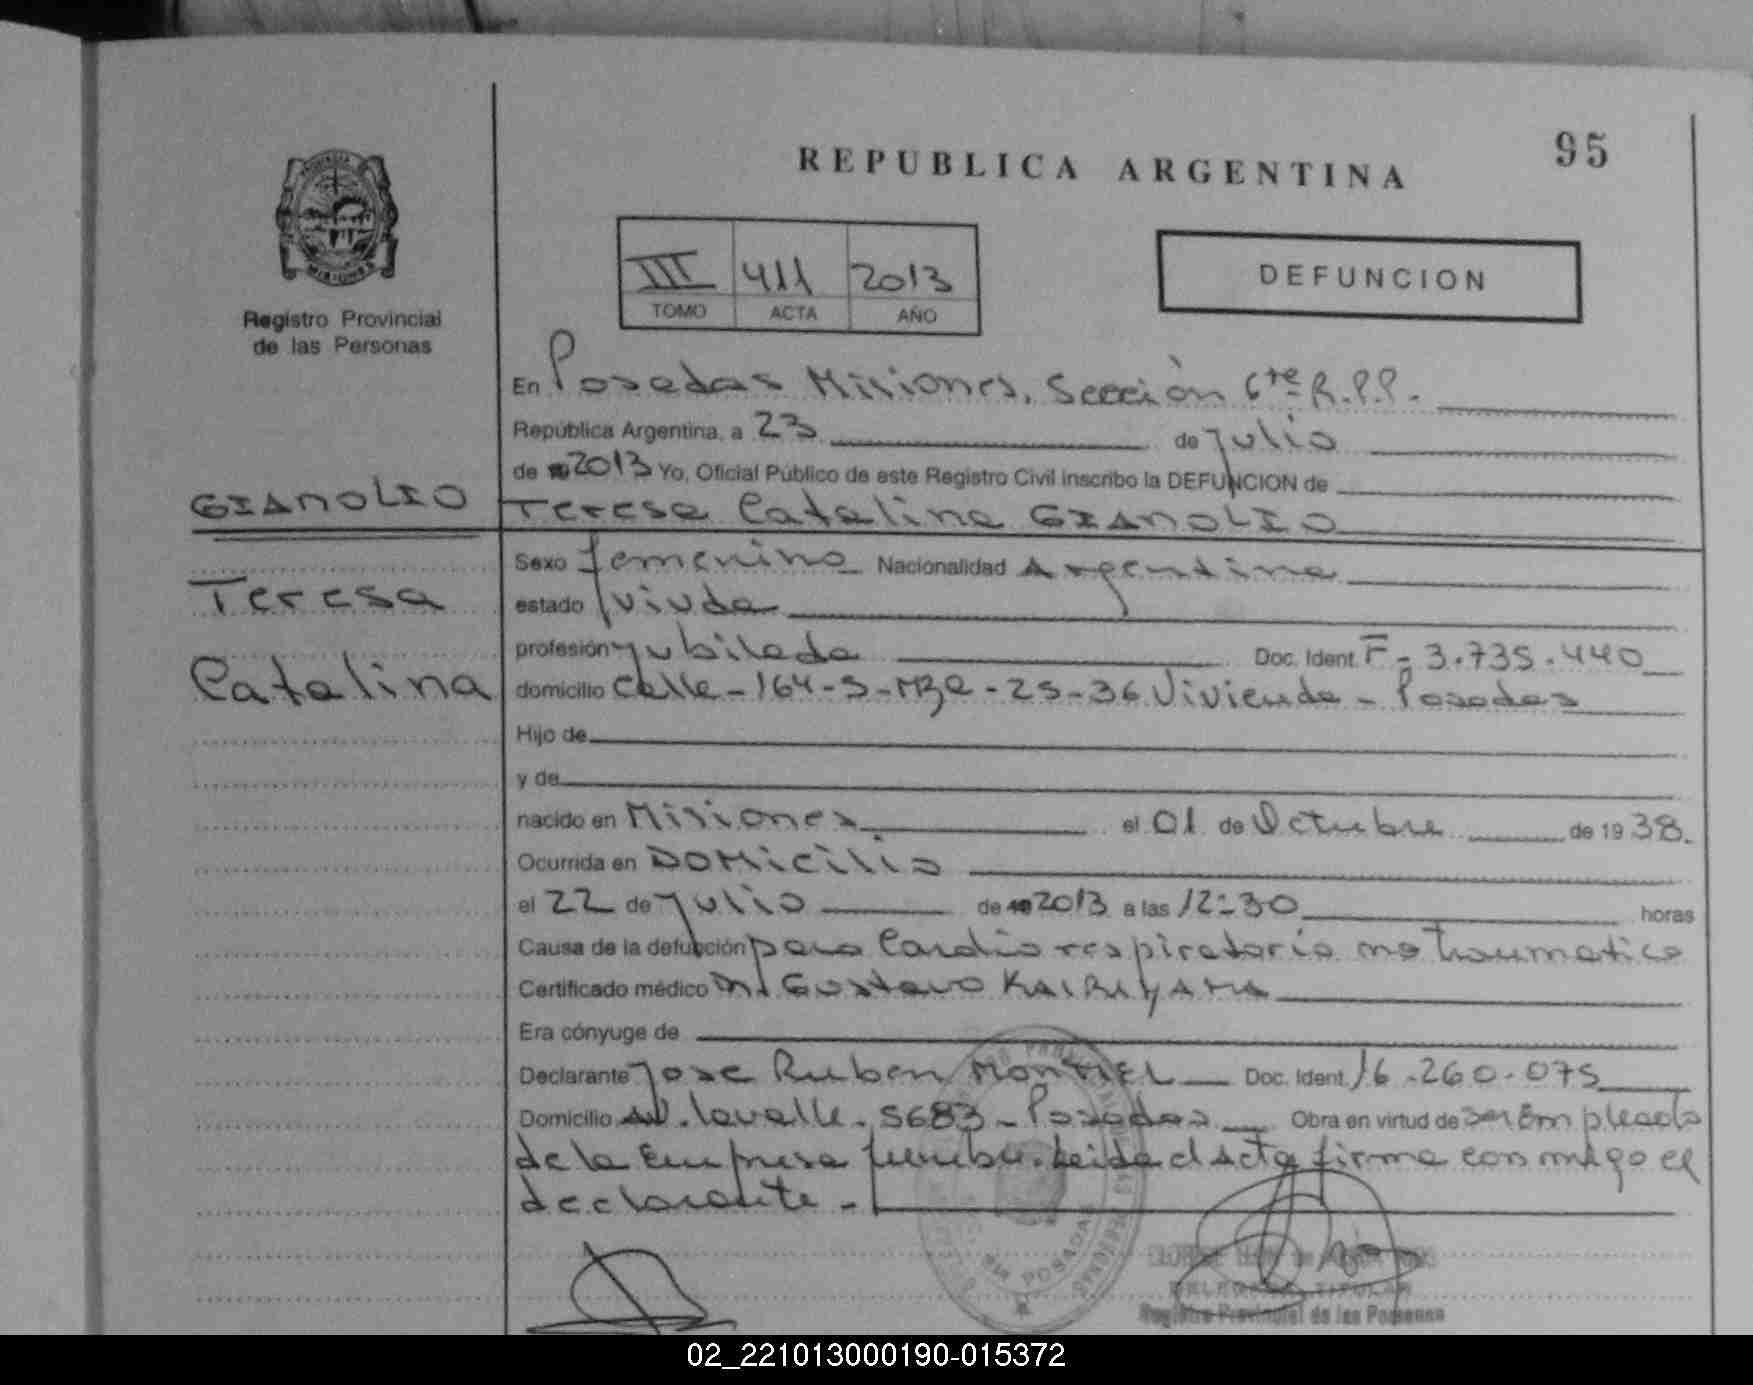 95
REPUBLICA ARGENTINA
MISIONES
Registro Provincial
de las Personas
III 411 2013
TOMO ACTA AÑO
DEFUNCION
En Posadas Misiones. Sección 6ta R.P.P.
República Argentina, a 23 de julio
de 2013 Yo, Oficial Público de este Registro Civil inscribo la DEFUNCION de
GIANOLIO
Teresa Catalina GIANOLIO
Teresa
Catalina
Sexo femenino Nacionalidad Argentina
estado viuda
profesión jubilada Doc. Ident. F-3.735.440
domicilio Calle-164-S-Mza-25-36 Vivienda-Posadas
Hijo de
y de
nacido en Misiones el 01 de Octubre de 1938.
Ocurrida en Domicilio
el 22 de julio de 2013 a las 12:30 horas
Causa de la defunción paro Cardio respiratorio no traumatico
Certificado médico Dr. Gustavo KAIRIYAMA
Era cónyuge de
Declarante Jose Ruben MONTIEL Doc. Ident. 16.260.075
Domicilio Av. Lavalle. 5683-Posadas Obra en virtud de ser Empleado
de la Empresa funebre. Leida el Acta firma con migo el
declarante.-
POSADAS
Registro Provincial de las Personas
02_221013000190-015372